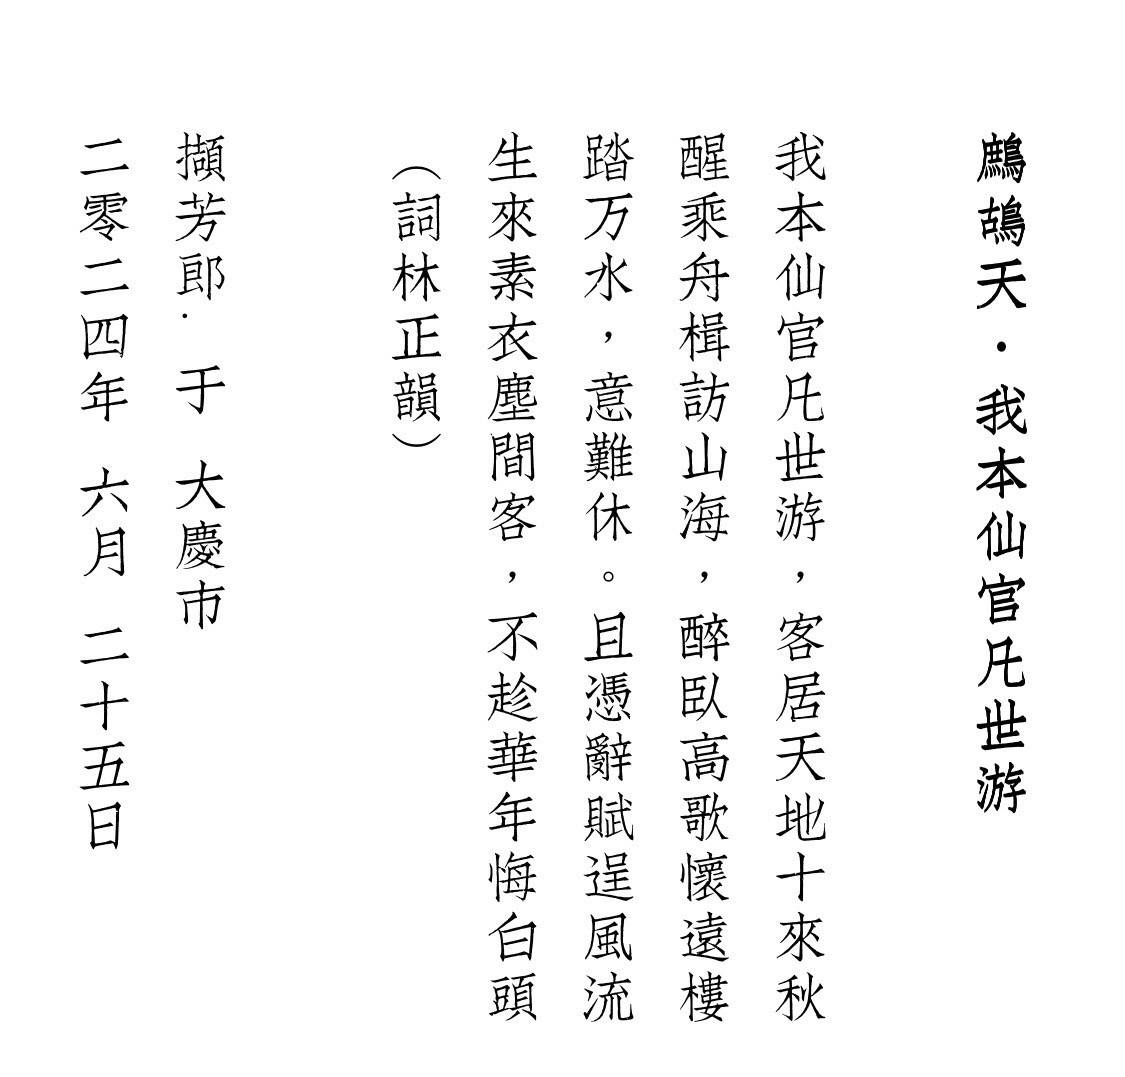 鷓鴣天·我本仙官凡世游
我本仙官凡世游，客居天地十來秋
醒乘舟楫訪山海，醉臥高歌懷遠樓
踏万水，意難休。且憑辭賦逞風流
生來素衣塵間客，不趁華年悔白頭
（詞林正韻）
擷芳郎. 于 大慶市
二零二四年 六月 二十五日